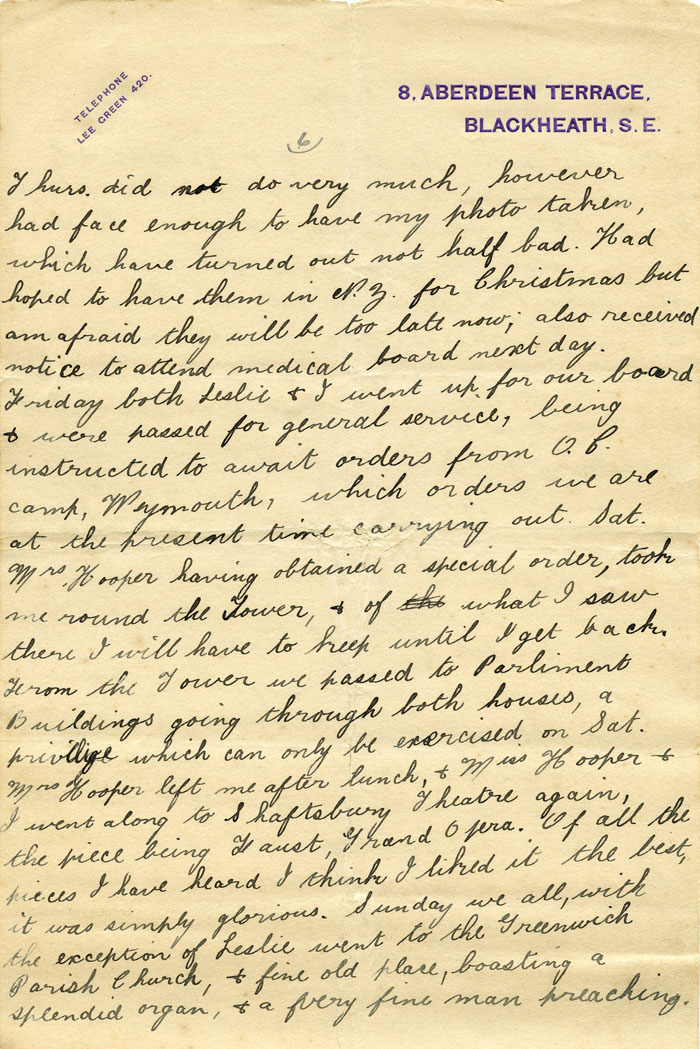 TELEPHONE
LEE GREEN 420.
8, ABERDEEN TERRACE,
BLACKHEATH, S.E.
6
Thurs. did not do very much, however
had face enough to have my photo taken,
which have turned out not half bad. Had
hoped to have them in N.Z. for Christmas but
am afraid they will be too late now; also received
notice to attend medical board next day.
Friday both Leslie & I went up for our board
& were passed for general service, being
instructed to await orders from O.C.
camp, Weymouth, which orders we are
at the present time carrying out. Sat.
Mrs. Hooper having obtained a special order, took
me round the Tower, & of the what I saw
there I will have to keep until I get back.
From the Tower we passed to Parliment
Buildings going through both houses, a
privilige which can only be exercised on Sat.
Mrs Hooper left me after lunch, & Miss Hooper &
I went along to Shaftsbury Theatre again,
the piece being Faust, Grand Opera. Of all the
pieces I have heard I think I liked it the best,
it was simply glorious. Sunday we all, with
the exception of Leslie went to the Greenwich
Parish Church, & fine old place, boasting a
splendid organ, & a very fine man preaching.